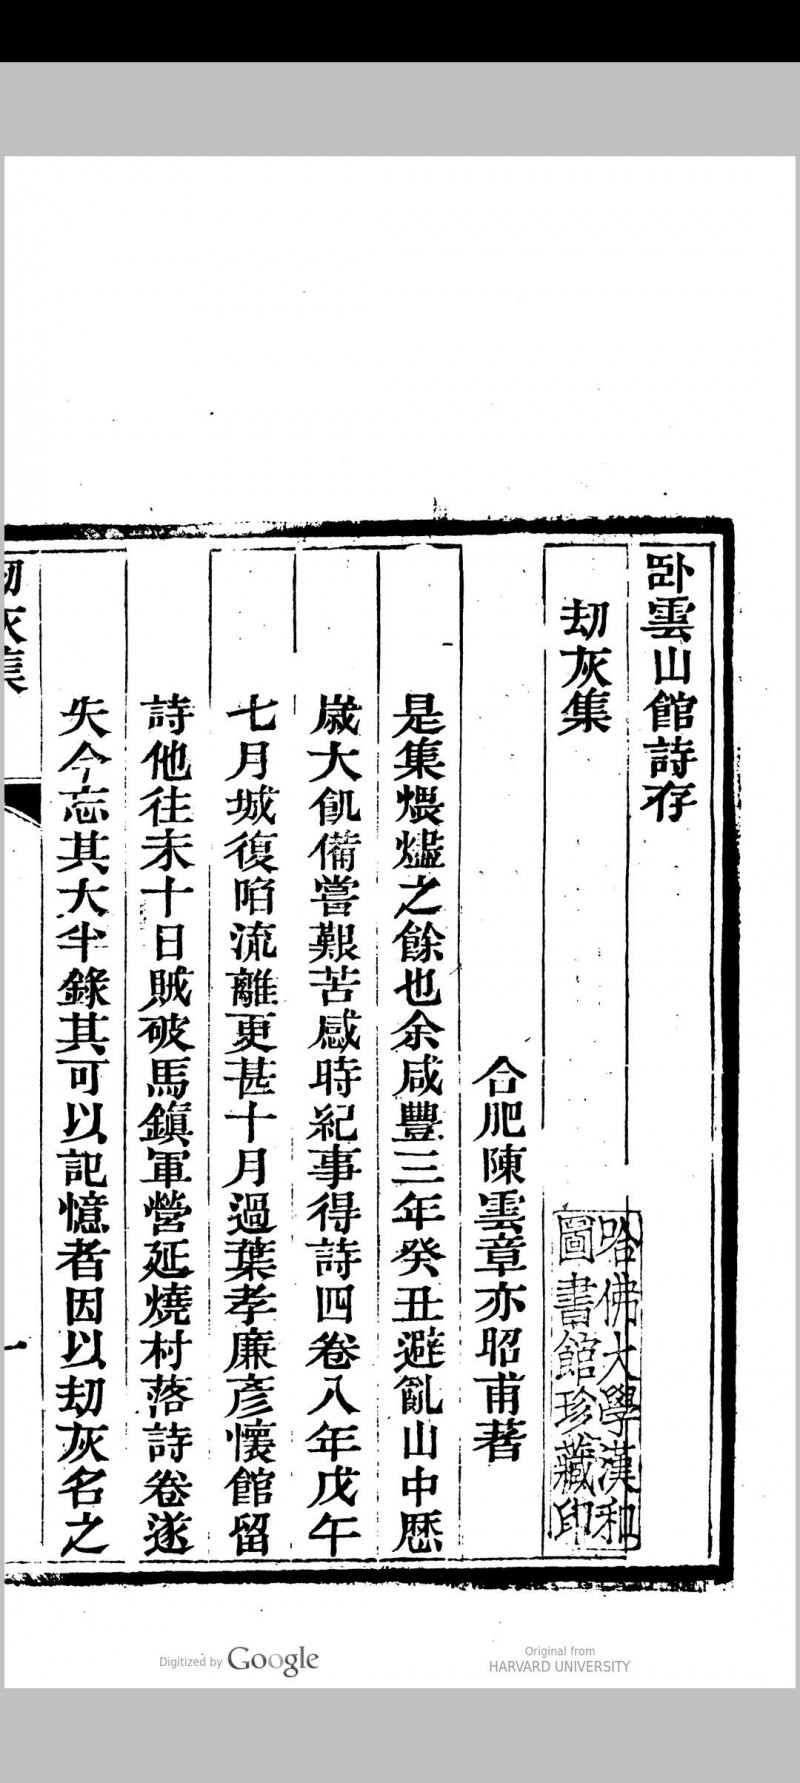 臥雲山館詩存
刧灰集
哈佛大學漢和
圖書館珍藏印
合肥陳雲章亦昭甫著
是集煨燼之餘也余咸豐三年癸丑避亂山中歷
歲大飢備嘗艱苦感時紀事得詩四卷八年戊午
七月城復陷流離更甚十月過葉孝廉彥懷館留
詩他往未十日賊破馬鎮軍營延燒村落詩卷遂
失今忘其大半錄其可以記憶者因以刧灰名之
刧灰集
一
Digitized by Google
Original from
HARVARD UNIVERSITY